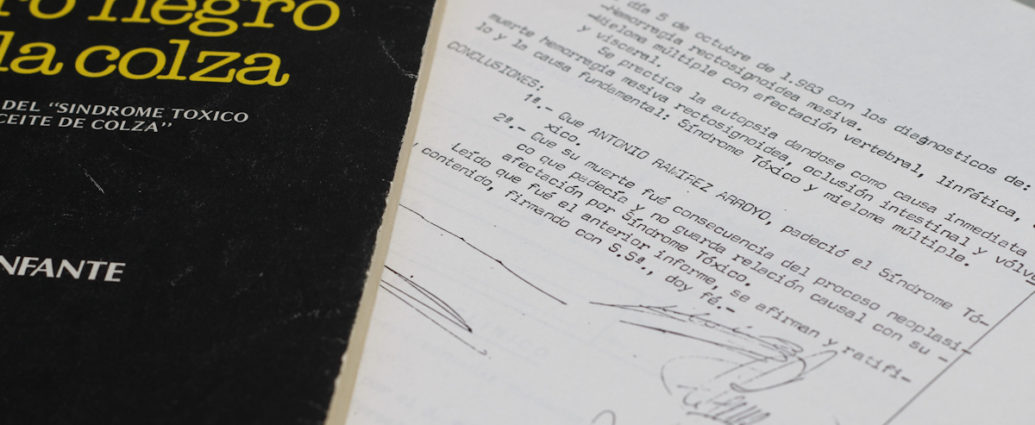 ro negro
la colza
DEL "SINDROME TOXICO
CEITE DE COLZA"
NFANTE
día 5 de octubre de 1.983 con los diagnosticos de:
-Hemorragia rectosignoidea masiva.
-Mieloma múltiple con afectación vertebral, linfática,
y visceral.
Se practica la autopsia dandose como causa inmediata
muerte hemorragia masiva rectosignoidea, oclusión intestinal y vólv
lo y la causa fundamental: Síndrome Tóxico y mieloma múltiple.
CONCLUSIONES:
1ª.- Que ANTONIO RAMIREZ ARROYO, padeció el Síndrome Tó-
xico.
2ª.- Que su muerte fué consecuencia del proceso neoplasi-
co que padecía y no guarda relación causal con su -
afectación por Síndrome Tóxico.
Leído que fué el anterior informe, se afirman y ratifi-
contenido, firmando con S.Sª., doy fé.-